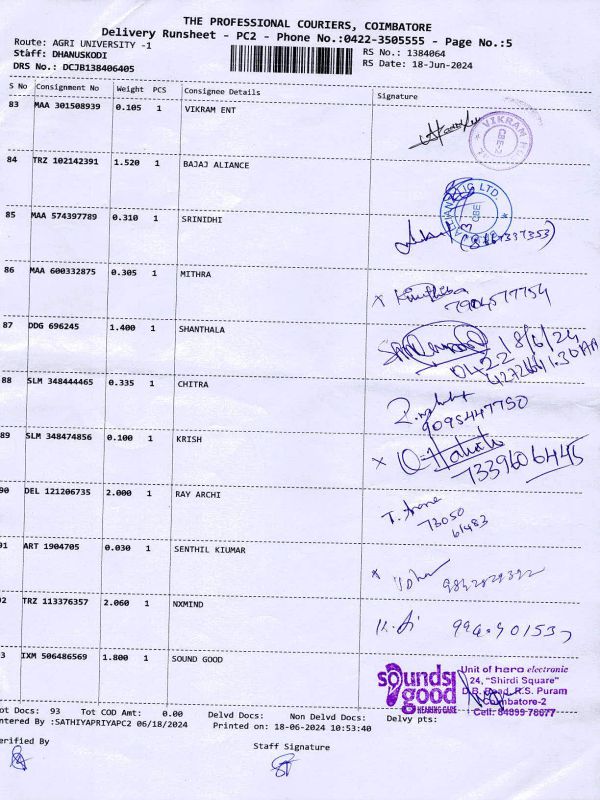 THE PROFESSIONAL COURIERS, COIMBATORE
Delivery Runsheet - PC2 - Phone No.:0422-3505555 - Page No.:5
Route: AGRI UNIVERSITY -1
RS No.: 1384064
Staff: DHANUSKODI
RS Date: 18-Jun-2024
DRS No.: DCJB138406405
S No Consignment No Weight PCS Consignee Details Signature
83 MAA 301508939 0.105 1 VIKRAM ENT
VIKRAM
CBE
84 TRZ 102142391 1.520 1 BAJAJ ALIANCE
LTD.
CBE
85 MAA 574397789 0.310 1 SRINIDHI
86 MAA 600332875 0.305 1 MITHRA
x Kiruthiba
7904577754
87 DDG 696245 1.400 1 SHANTHALA
18/6/24
0422
88 SLM 348444465 0.335 1 CHITRA
9095447750
89 SLM 348474856 0.100 1 KRISH
x
7339606445
90 DEL 121206735 2.000 1 RAY ARCHI
T.
73050
61483
91 ART 1904705 0.030 1 SENTHIL KIUMAR
x
92 TRZ 113376357 2.060 1 NXMIND
93 IXM 506486569 1.800 1 SOUND GOOD
sounds good
HEARING CARE
Unit of hero electronic
24, "Shirdi Square"
D.B. Road, R.S. Puram
Coimbatore-2
Cell: 84899 78677
Tot Docs: 93 Tot COD Amt: 0.00 Delvd Docs: Non Delvd Docs: Delvy pts:
Entered By :SATHIYAPRIYAPC2 06/18/2024 Printed on: 18-06-2024 10:53:40
Verified By
Staff Signature